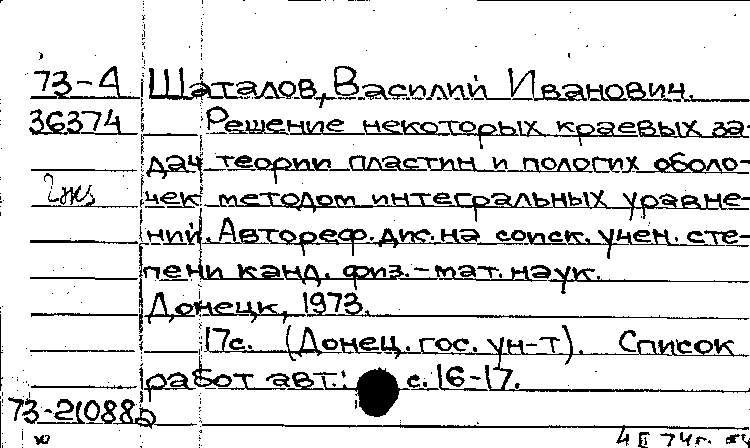 73-4 Шаталов, Василий Иванович.
36374 Решение некоторых краевых за-
дач теории пластин и пологих оболо-
2 экз чек методом интегральных уравне-
ний. Автореф. дис. на соиск. учен. сте-
пени канд. физ.-мат. наук.
Донецк, 1973.
17с. (Донец. гос. ун-т). Список
работ авт.: с. 16-17.
73-21088
4 II 74г.